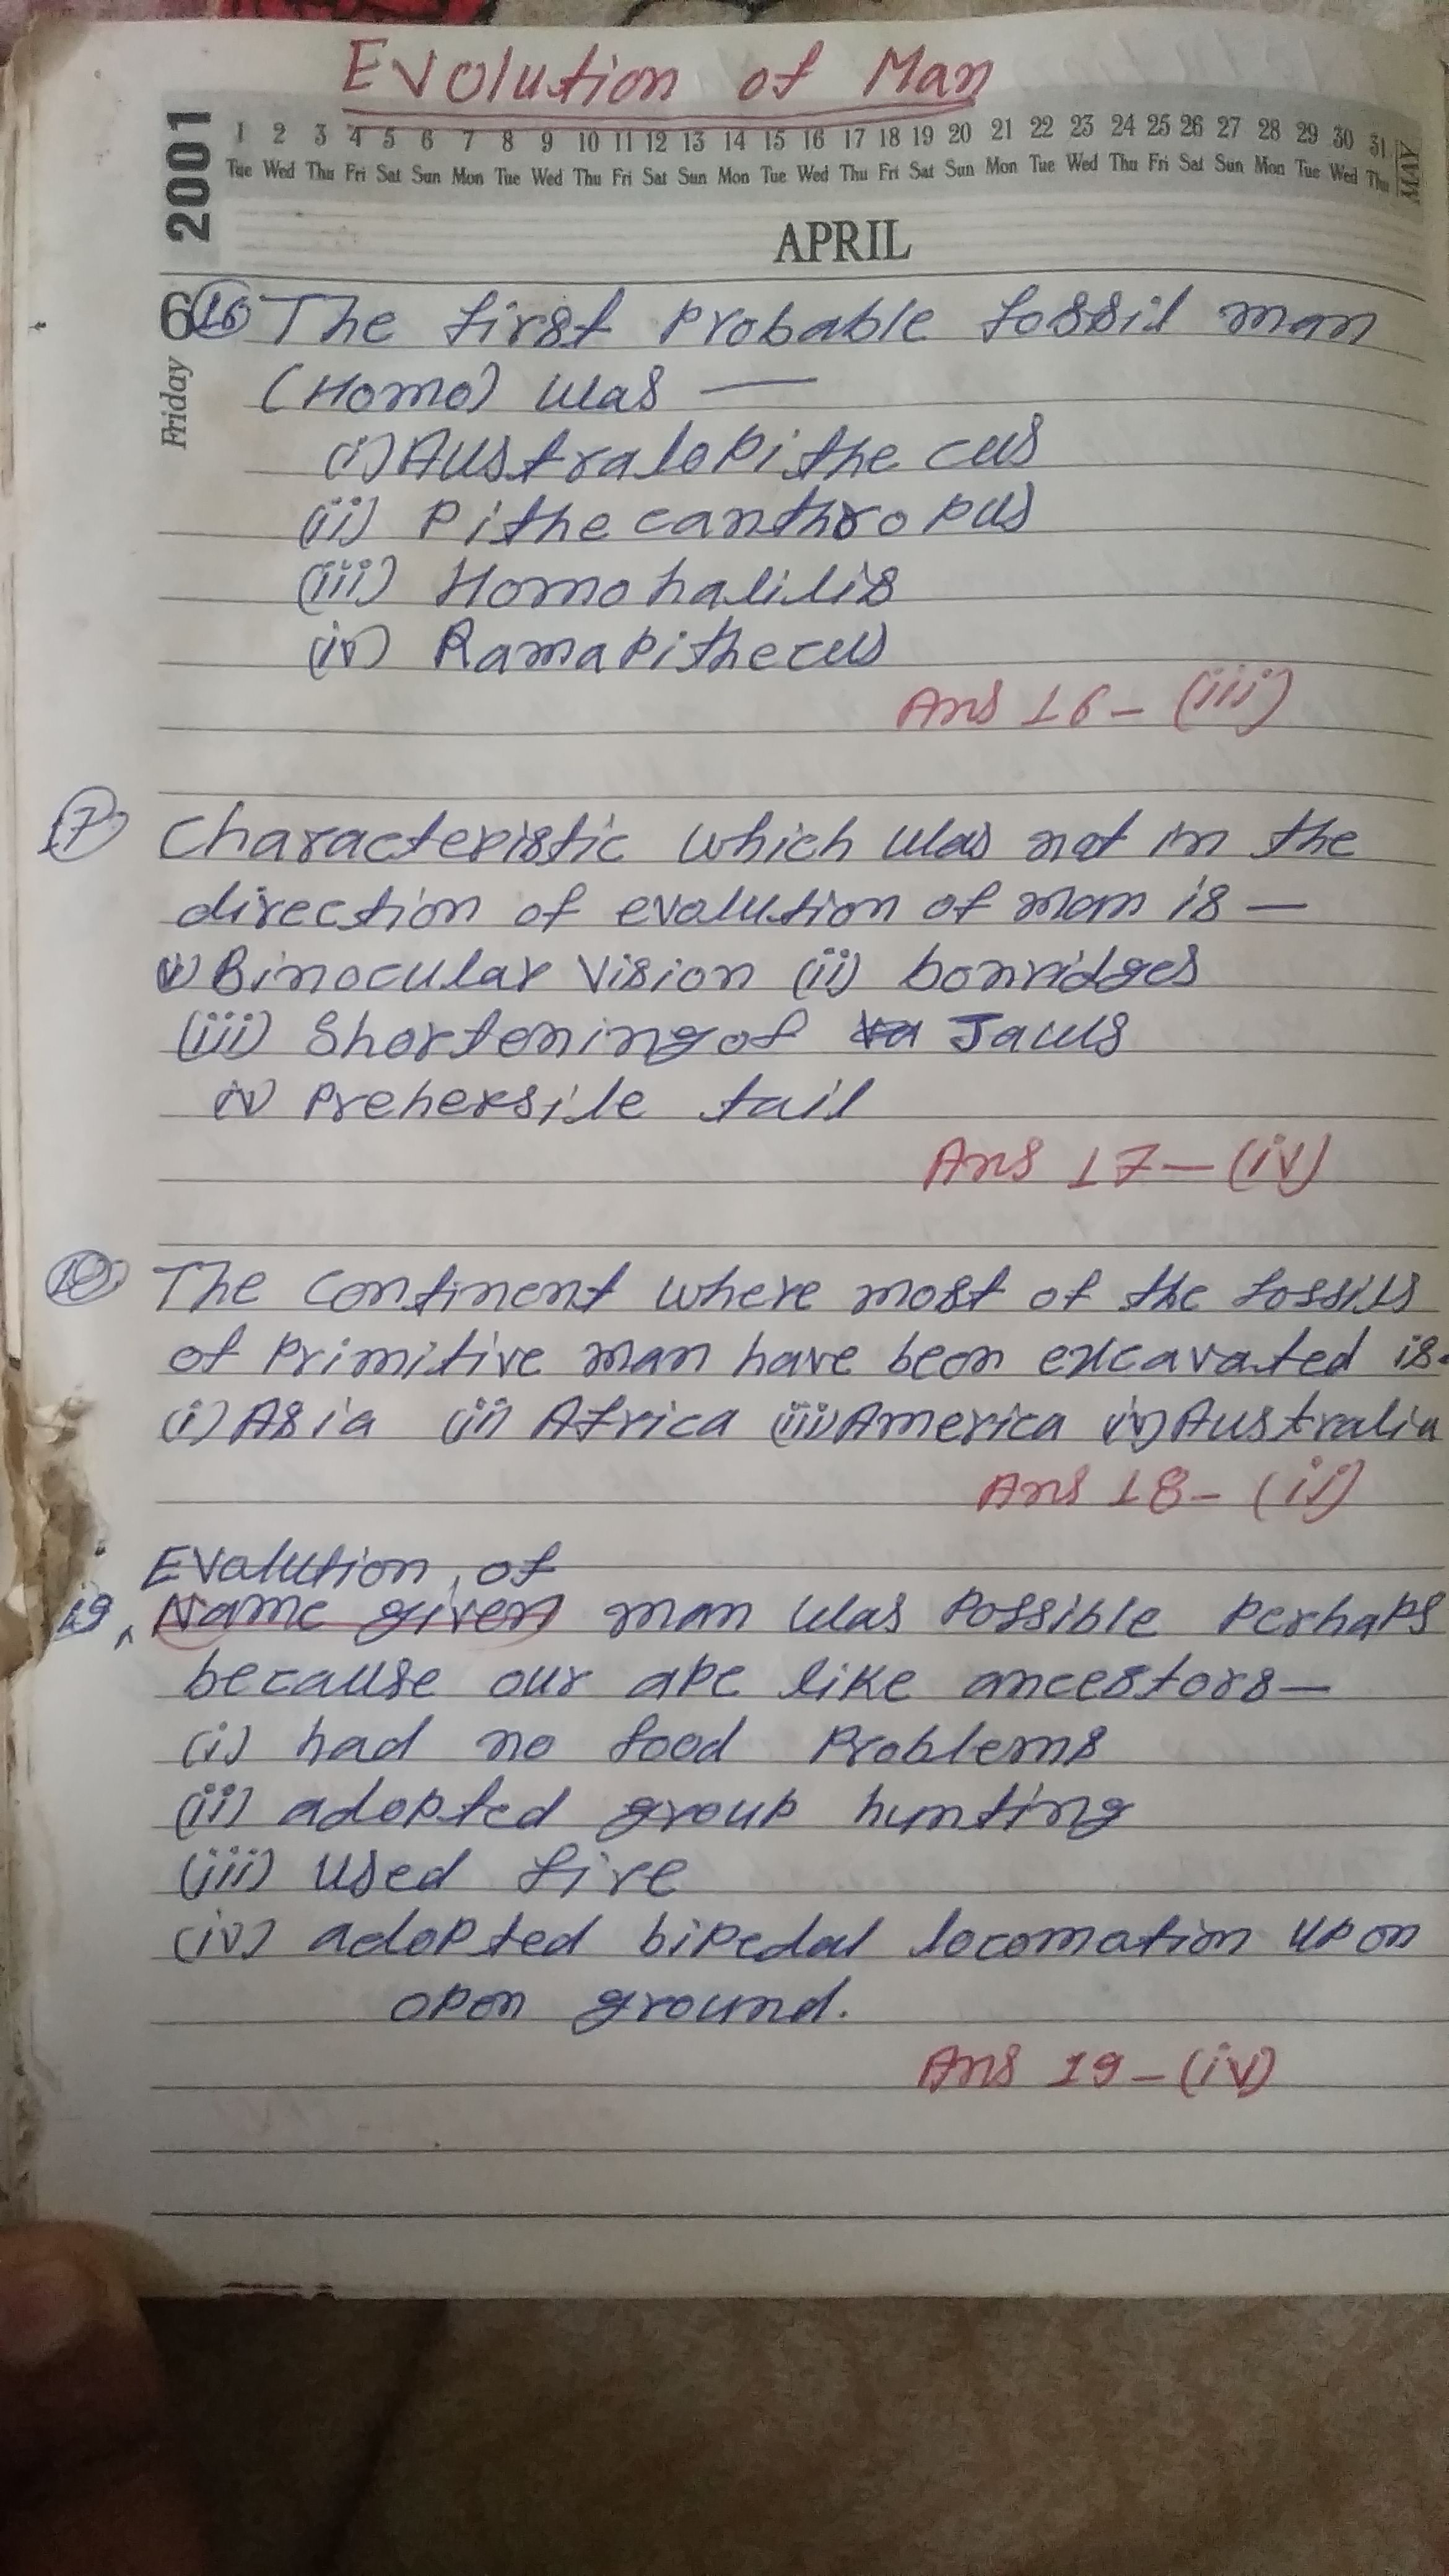 Evolution of Man
2001
1 2 3 4 5 6 7 8 9 10 11 12 13 14 15 16 17 18 19 20 21 22 23 24 25 26 27 28 29 30 31
Tue Wed Thu Fri Sat Sun Mon Tue Wed Thu Fri Sat Sun Mon Tue Wed Thu Fri Sat Sun Mon Tue Wed Thu Fri Sat Sun Mon Tue Wed Thu
MAY
APRIL
6
Friday
16 The first probable fossil man
(Homo) was —
(i) Australopithecus
(ii) Pithecanthropus
(iii) Homo halilis
(iv) Ramapithecus
Ans 16 - (iii)
17 Characteristic which was not in the
direction of evolution of man is —
(i) Binocular Vision (ii) bonridges
(iii) Shortening of Jaws
iv) Prehersile tail
Ans 17 — (iv)
18 The continent where most of the fossils
of Primitive man have been excavated is.
(i) Asia (ii) Africa (iii) America iv) Australia
Ans 18 - (ii)
Evalution of
19, Name given man was possible perhaps
because our ape like ancestors —
(i) had no food Problems
(ii) adopted group hunting
(iii) used fire
(iv) adopted bipedal locomation upon
open ground.
Ans 19 - (iv)